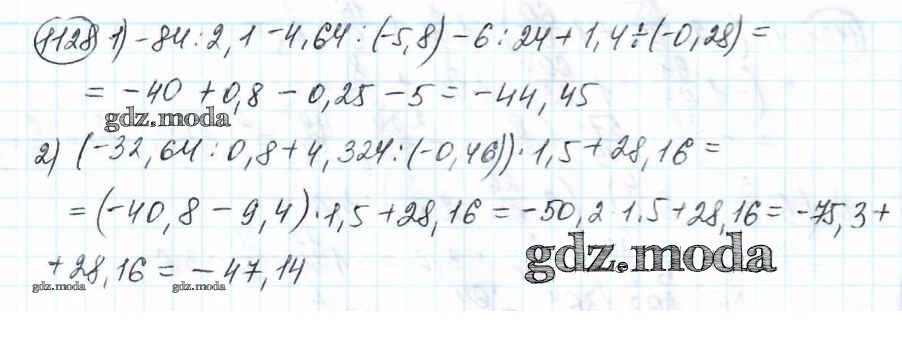 1128 1) -84:2,1-4,64:(-5,8)-6:24+1,4÷(-0,28)=
= -40 +0,8 - 0,25 -5 = -44,45
gdz.moda
2) (-32,64:0,8+4,324:(-0,46))·1,5+28,16=
=(-40,8-9,4)·1,5+28,16=-50,2·1,5+28,16=-75,3+
gdz.moda
+28,16=-47,14
gdz.moda gdz.moda